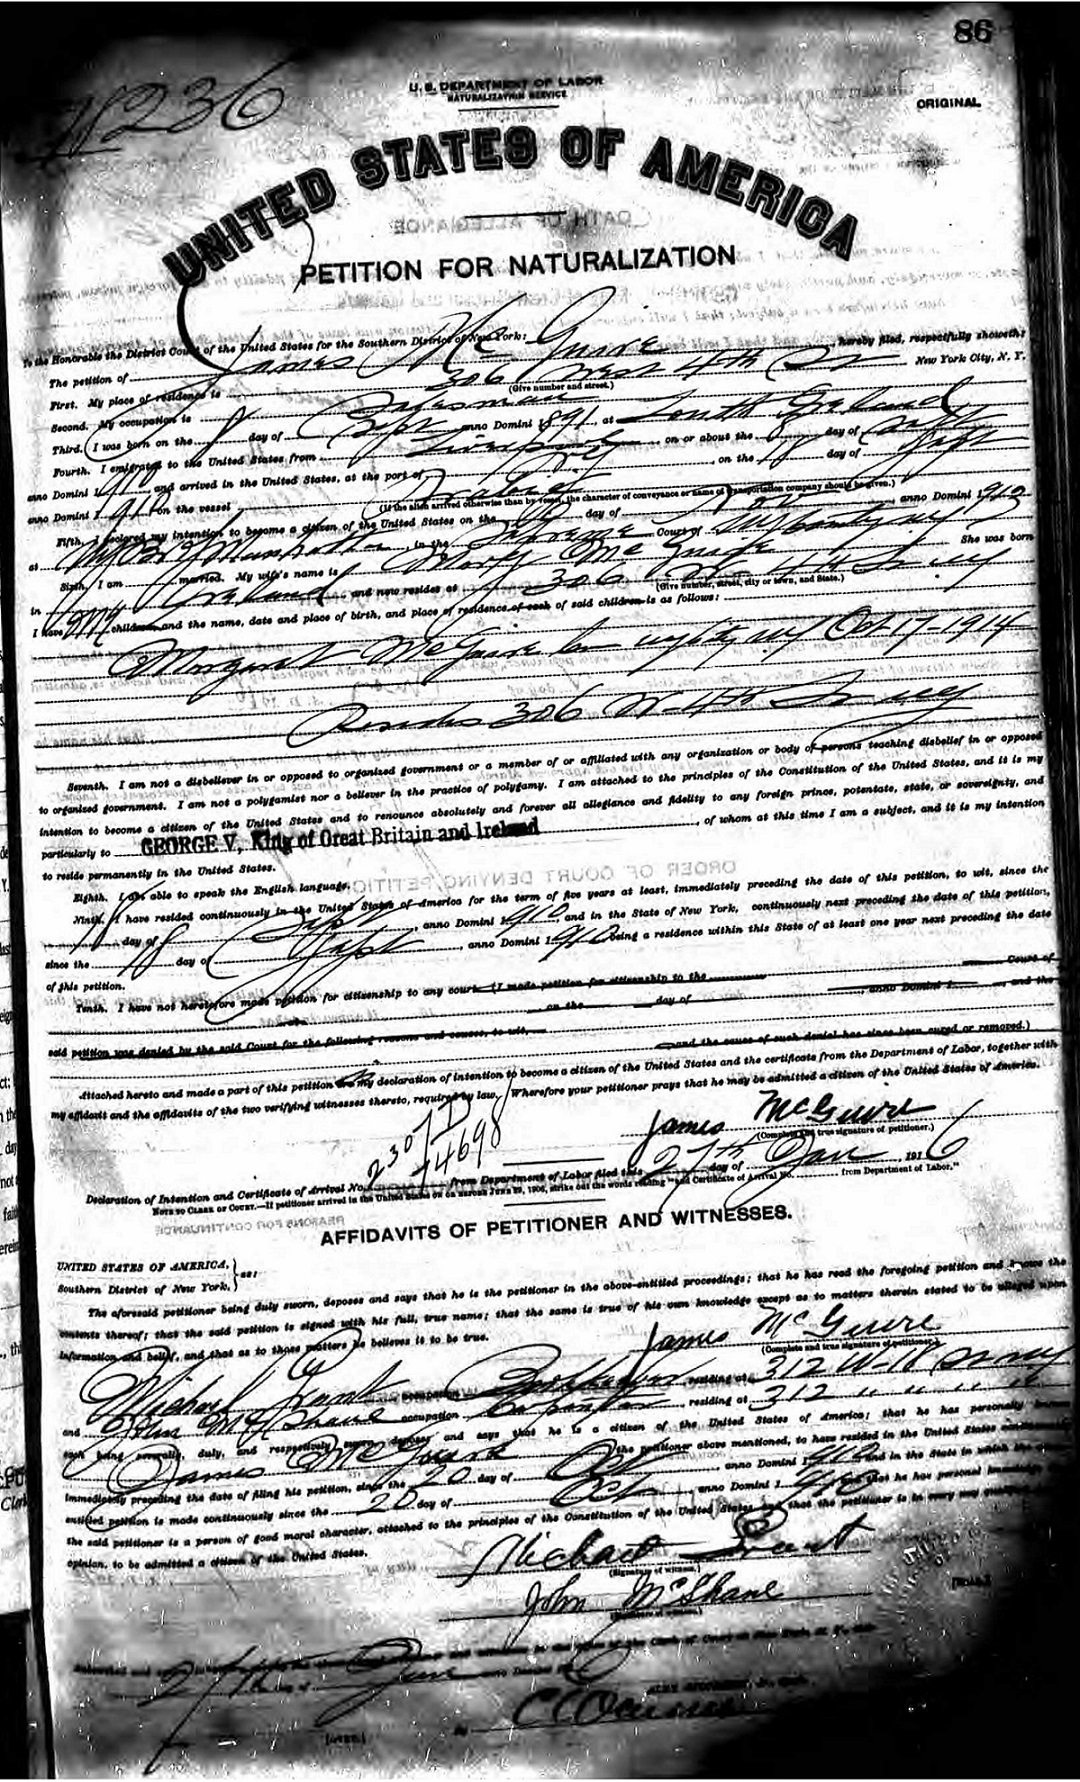 86
18236
U. S. DEPARTMENT OF LABOR
NATURALIZATION SERVICE
ORIGINAL
UNITED STATES OF AMERICA
PETITION FOR NATURALIZATION
To the Honorable the District Court of the United States for the Southern District of New York:
The petition of James McGuire, hereby filed, respectfully showeth:
First. My place of residence is 306 West 4th St New York City, N. Y.
(Give number and street.)
Second. My occupation is Salesman
Third. I was born on the day of Sept anno Domini 1891, at South Ireland
Fourth. I emigrated to the United States from Liverpool on or about the 8 day of Sept
anno Domini 1910, and arrived in the United States, at the port of NY, on the 18 day of Sept
anno Domini 1910 on the vessel Arabic
(If the alien arrived otherwise than by vessel, the character of conveyance or name of transportation company should be given.)
Fifth. I declared my intention to become a citizen of the United States on the day of Nov, anno Domini 1912
at NY Manhattan, in the Supreme Court of NY County NY
Sixth. I am married. My wife's name is Mary McGuire She was born
in Ireland and now resides at 306 W 4th St NY
(Give number, street, city or town, and State.)
I have children and the name, date and place of birth, and place of residence of each of said children is as follows:
Margaret McGuire born NY Oct 17-1914
Resides 306 W-4th St NY
Seventh. I am not a disbeliever in or opposed to organized government or a member of or affiliated with any organization or body of persons teaching disbelief in or opposed
to organized government. I am not a polygamist nor a believer in the practice of polygamy. I am attached to the principles of the Constitution of the United States, and it is my
intention to become a citizen of the United States and to renounce absolutely and forever all allegiance and fidelity to any foreign prince, potentate, state, or sovereignty, and
particularly to GEORGE V, King of Great Britain and Ireland, of whom at this time I am a subject, and it is my intention
to reside permanently in the United States.
Eighth. I am able to speak the English language.
Ninth. I have resided continuously in the United States of America for the term of five years at least, immediately preceding the date of this petition, to wit, since the
18 day of Sept, anno Domini 1910, and in the State of New York, continuously next preceding the date of this petition,
since the 18 day of Sept, anno Domini 1910 being a residence within this State of at least one year next preceding the date
of this petition.
Tenth. I have not heretofore made petition for citizenship to any court. (I made petition for citizenship to the Court of
on the day of, anno Domini 1, and the
said petition was denied by the said Court for the following reasons and causes, to wit, and the cause of such denial has since been cured or removed.)
Attached hereto and made a part of this petition are my declaration of intention to become a citizen of the United States and the certificate from the Department of Labor, together with
my affidavit and the affidavits of the two verifying witnesses thereto, required by law. Wherefore your petitioner prays that he may be admitted a citizen of the United States of America.
James McGuire
(Complete and true signature of petitioner.)
Declaration of Intention and Certificate of Arrival No. 14698 from Department of Labor filed this 27th day of Jan, 1916
NOTE TO CLERK OF COURT.—If petitioner arrived in the United States on or before June 29, 1906, strike out the words reading "and Certificate of Arrival No. from Department of Labor."
AFFIDAVITS OF PETITIONER AND WITNESSES.
UNITED STATES OF AMERICA,
Southern District of New York, } ss:
The aforesaid petitioner being duly sworn, deposes and says that he is the petitioner in the above-entitled proceedings; that he has read the foregoing petition and knows the
contents thereof; that the said petition is signed with his full, true name; that the same is true of his own knowledge except as to matters therein stated to be alleged upon
information and belief, and that as to those matters he believes it to be true.
James McGuire
(Complete and true signature of petitioner.)
Michael Grant occupation residing at 312 W-18 St NY
and John McShane occupation Carpenter, residing at 312 " " " "
each being severally, duly, and respectively sworn, deposes and says that he is a citizen of the United States of America; that he has personally known
James McGuire the petitioner above mentioned, to have resided in the United States
immediately preceding the date of filing his petition, since the 20 day of Oct, anno Domini 1910 and in the State in which the
entitled petition is made continuously since the 20 day of Oct, anno Domini 1910 that he has personal knowledge
the said petitioner is a person of good moral character, attached to the principles of the Constitution of the United States and that the petitioner is in every way qualified, in
opinion, to be admitted a citizen of the United States.
Michael Grant
(Signature of witness.)
John McShane
(Signature of witness.)
[SEAL.]
27th day of Jan anno Domini